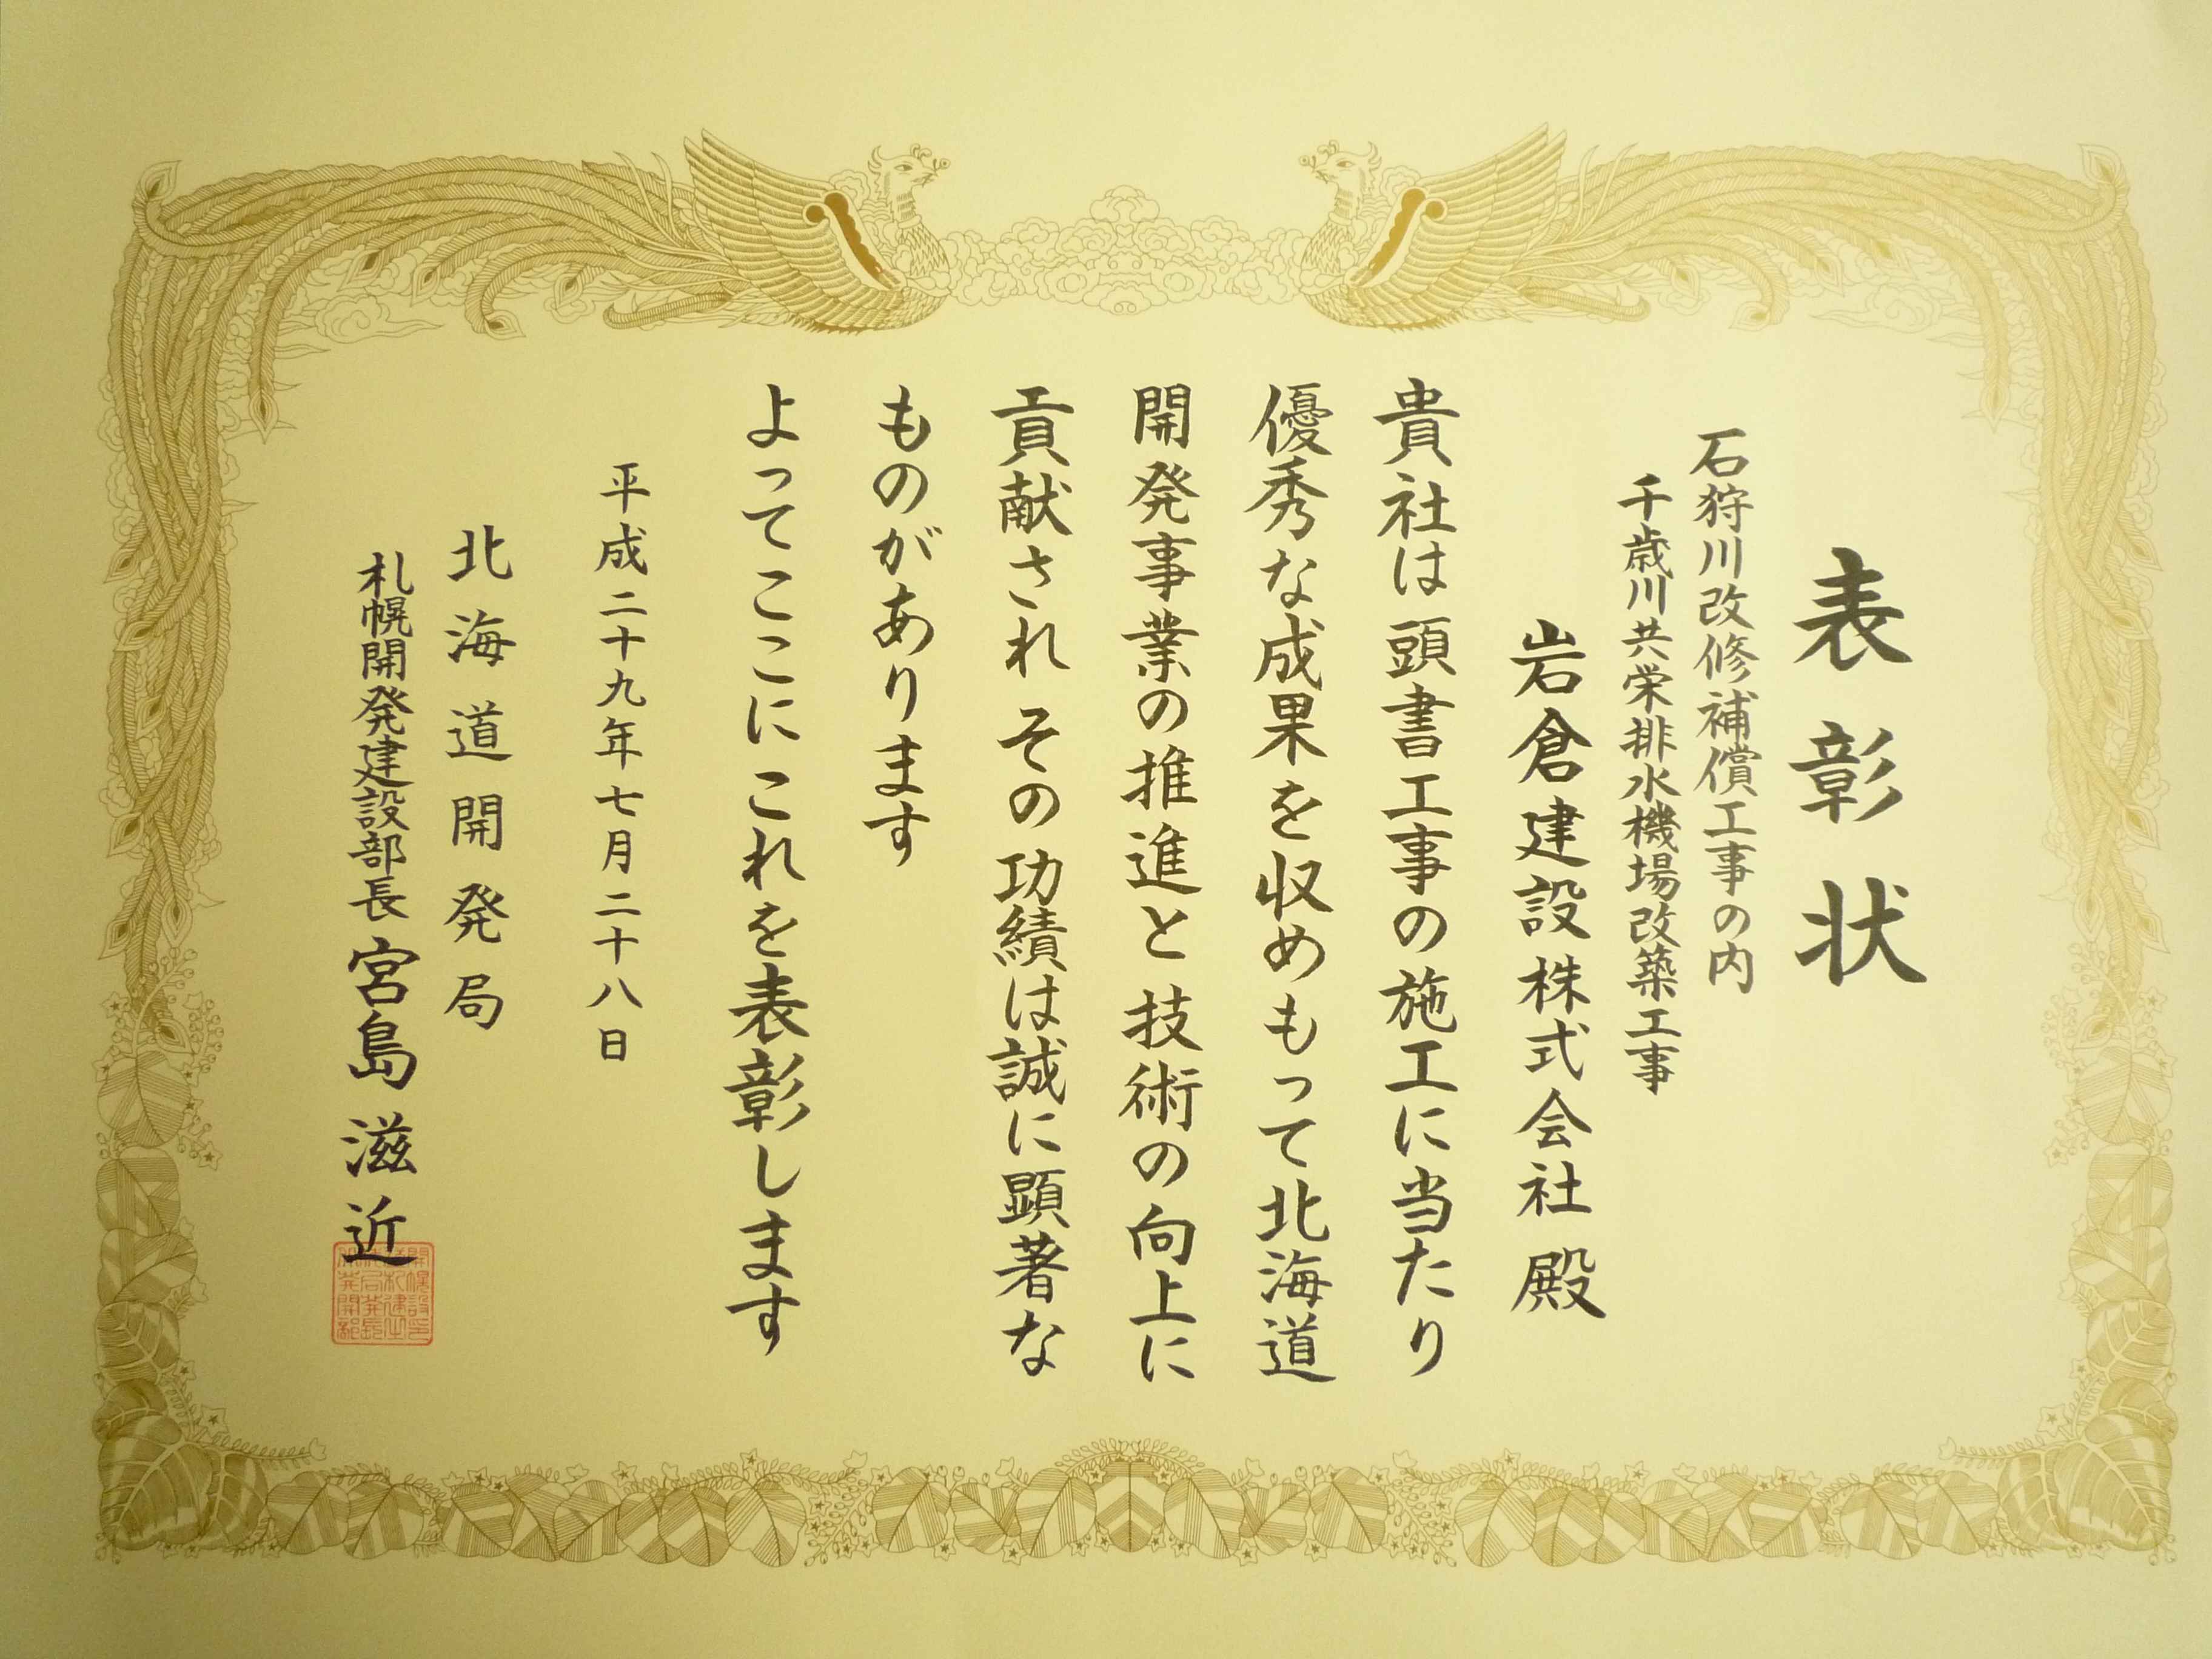 表彰状
石狩川改修補償工事の内
千歳川共栄排水機場改築工事
岩倉建設株式会社 殿
貴社は頭書工事の施工に当たり
優秀な成果を収めもって北海道
開発事業の推進と技術の向上に
貢献され その功績は誠に顕著な
ものがあります
よってここに これを表彰します
平成二十九年七月二十八日
北海道開発局
札幌開発建設部長 宮島滋近